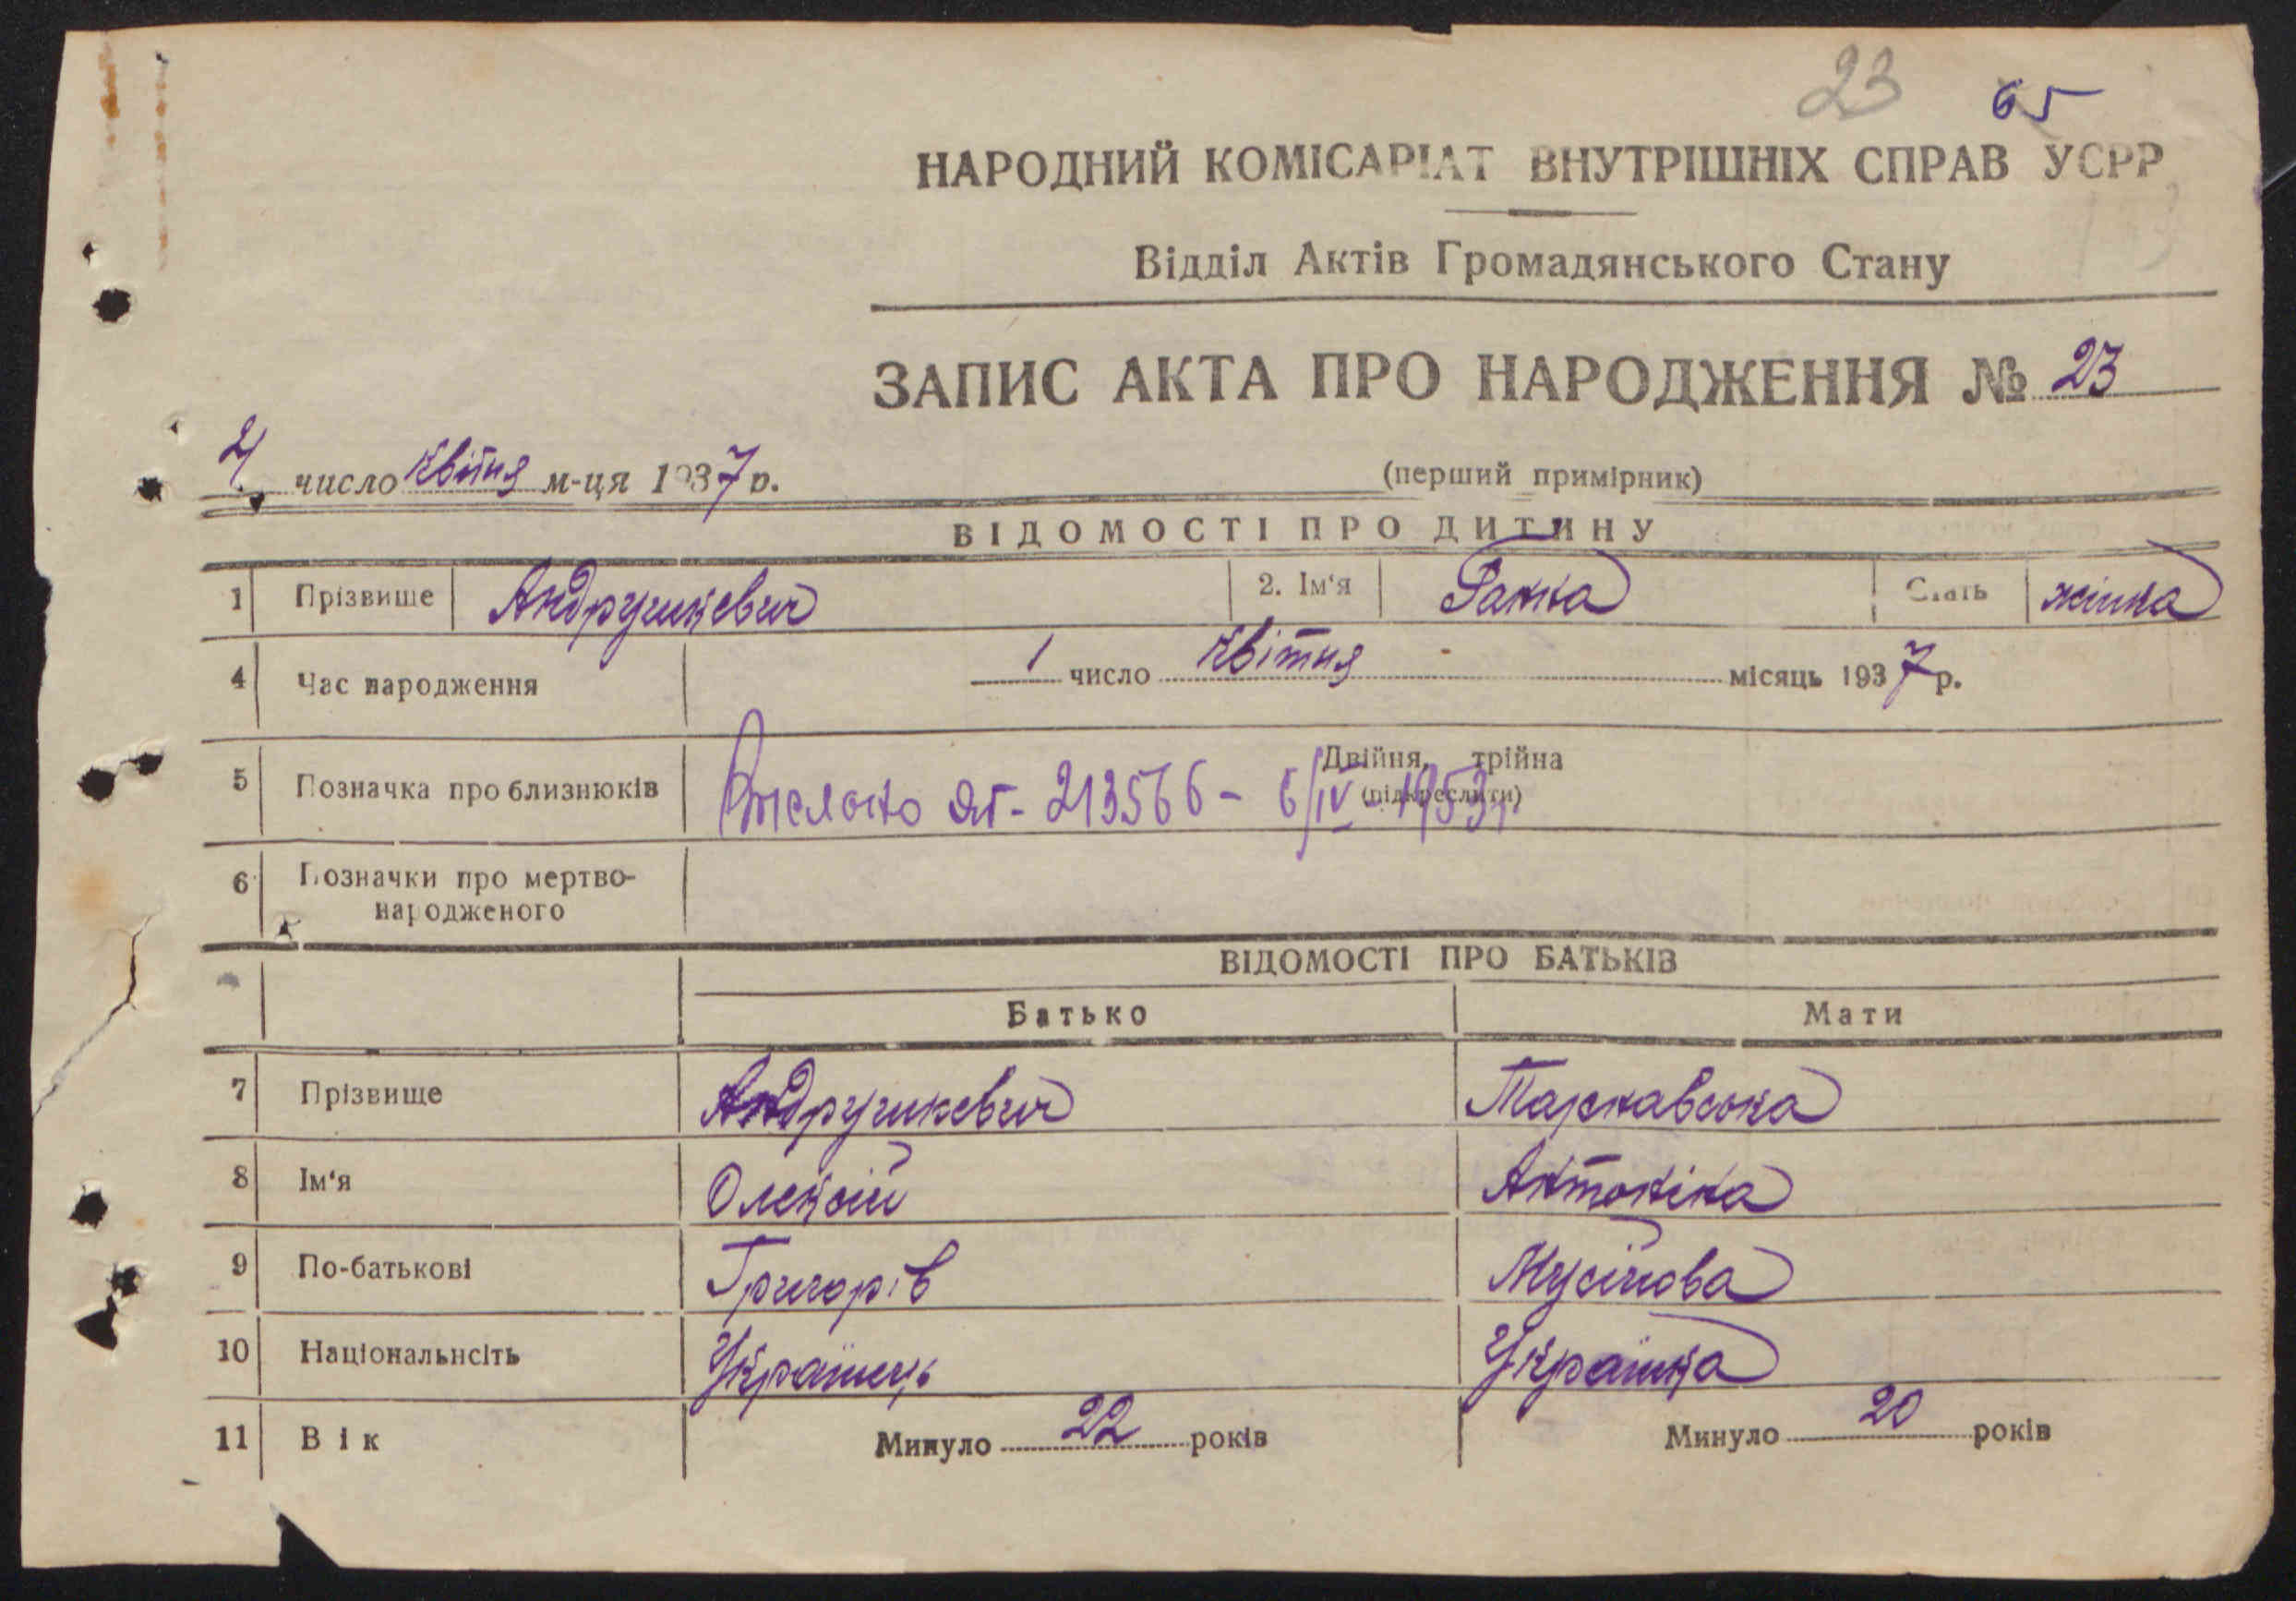 23 65
НАРОДНИЙ КОМІСАРІАТ ВНУТРІШНІХ СПРАВ УСРР
Відділ Актів Громадянського Стану
ЗАПИС АКТА ПРО НАРОДЖЕННЯ № 23
4 число квітня м-ця 1937 р.
(перший примірник)
ВІДОМОСТІ ПРО ДИТИНУ
1 Прізвище Андрушкевич 2. Ім'я Ганна Стать жінка
4 Час народження 1 число квітня місяць 1937 р.
5 Позначка про близнюків Двійня, трійна
(підкреслити)
213566 - 6/IV - 1953р.
6 Позначки про мертво-
народженого
ВІДОМОСТІ ПРО БАТЬКІВ
Батько Мати
7 Прізвище Андрушкевич Тарнавська
8 Ім'я Олексій Антоніна
9 По-батькові Григорів Мусійова
10 Національнсіть Українець Українка
11 Вік Минуло 22 років Минуло 20 років